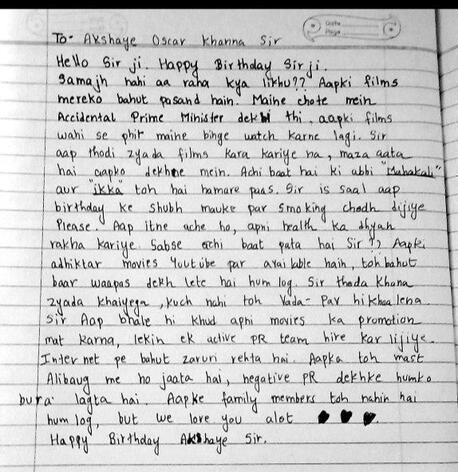 Date
Page
To- Akshaye Oscar Khanna Sir
Hello Sir ji. Happy Birthday Sir ji.
Samajh nahi aa raha kya likhu?? Aapki films
mereko bahut pasand hain. Maine chote mein
Accidental Prime Minister dekhi thi, aapki films
wahi se phir maine binge watch karne lagi. Sir
aap thodi zyada films kara kariye na, maza aata
hai aapko dekhne mein. Achi baat hai ki abbi "Mahakali"
aur "ikka" toh hai hamare paas. Sir is saal aap
birthday ke shubh mauke par smoking chodh dijiye
Please. Aap itne ache ho, apni health ka dhyan
rakha kariye. Sabse achi baat pata hai Sir?? Aapki
adhiktar movies Youtube par available hain, toh bahut
baar waapas dekh lete hai hum log. Sir thoda khana
zyada khaiyega, kuch nahi toh Vada-Pav hi khaa lena.
Sir Aap bhale hi khud apni movies ka promotion
mat karna, lekin ek active PR team hire kar lijiye.
Internet pe bahut zaruri rehta hai. Aapka toh mast
Alibaug me ho jaata hai, negative PR dekhke humko
bura lagta hai. Aapke family members toh nahin hai
hum log, but we love you alot ♥ ♥ ♥.
Happy Birthday Akshaye Sir.